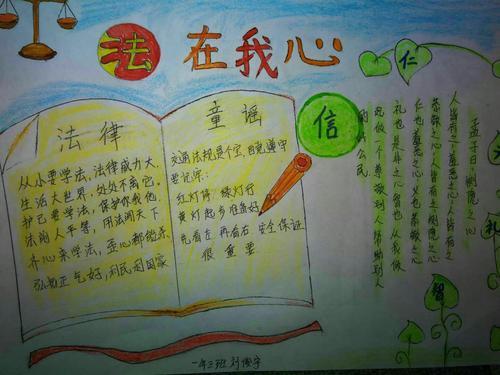 法在我心
法律
从小要学法，法律威力大，
生活大世界，处处不离它。
护己要学法，保护你我他，
法润人平等，用法闯天下
齐心来学法，歪心都能杀，
弘扬正气好，利民固国家
童谣
交通法规是个宝，自觉遵守
要记得：
红灯停 绿灯行
黄灯起步准备好
先看左 再看右 安全保证
很重要
信
仁
义
礼
智
孟子曰恻隐之心
人皆有之羞恶之心人皆有之
恭敬之心人皆有之恻隐之心
仁也羞恶之心义也恭敬之心
礼也是非之心智也从我做
起做一个尊敬别人帮助别人
的好公民
一年三班 刘俊宇